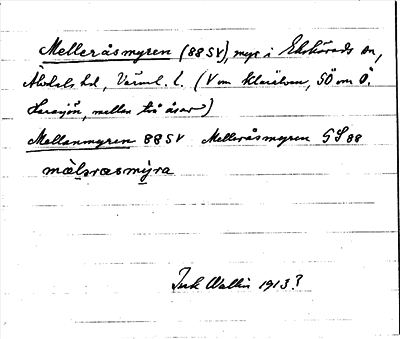 Melleråsmyren (88 SV), myr i Ekshärads sn,
Älvdals hd, Värml. l. (V om Klarälven, SÖ om Ö.
Larsjön, mellan två åsar)
Mellanmyren 88 SV Melleråsmyren GS 88
mælsræsmýra
1913?